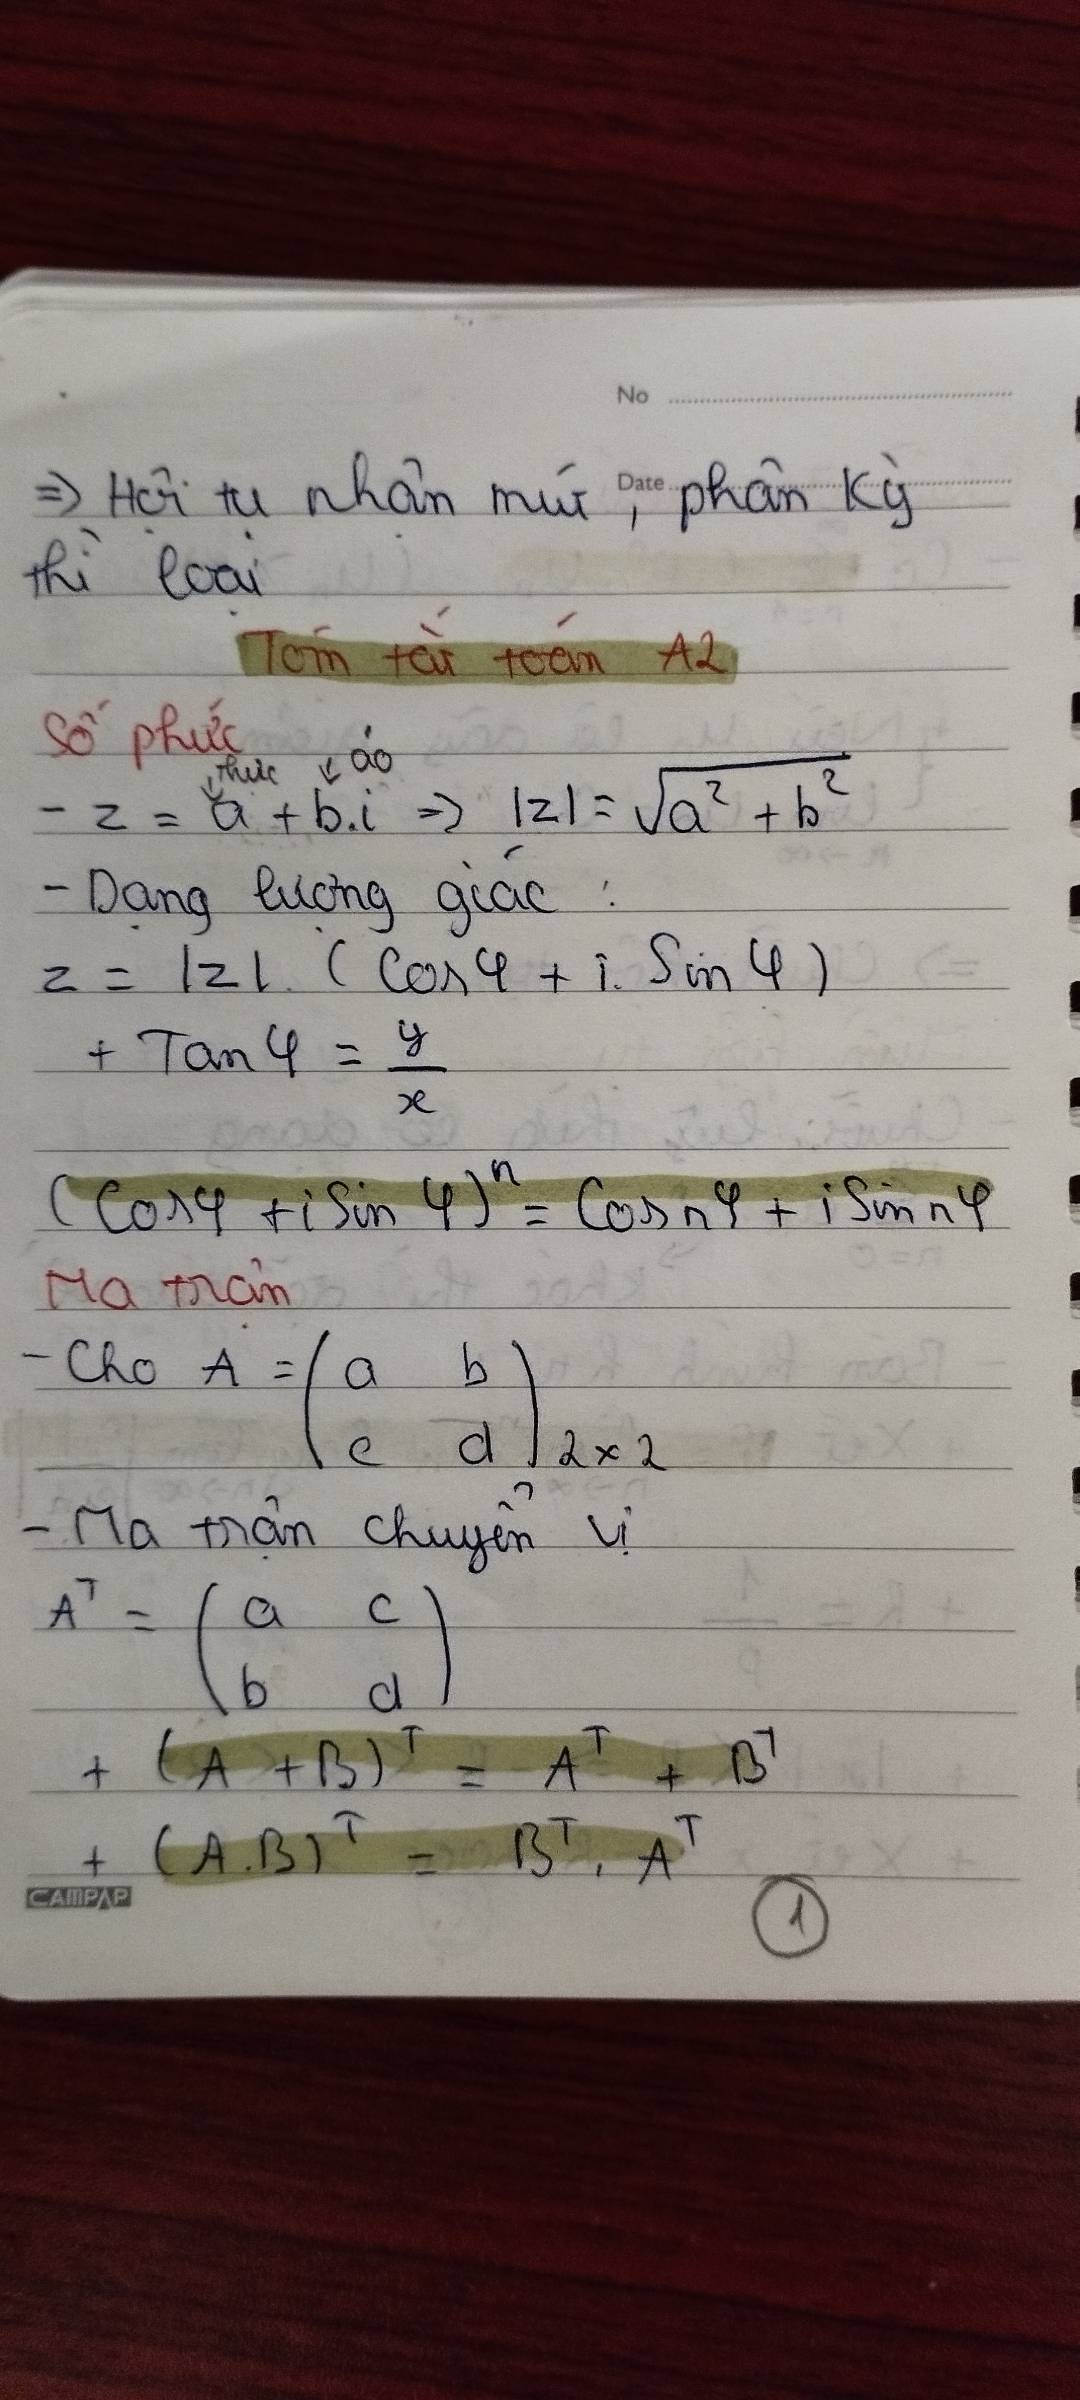 No
Date
=> Hội tụ nhận mút, phân kỳ
thì loại
Tóm tắt toán A2
Số phức
thực ảo
- z = a + b.i => |z| = √(a² + b²)
- Dạng lượng giác :
z = |z|. (Cosφ + i. Sinφ)
+ Tanφ = y/x
(Cosφ + iSinφ)ⁿ = Cosnφ + iSinnφ
Ma trận
- Cho A = (a b
c d) 2x2
- Ma trận chuyển vị
Aᵀ = (a c
b d)
+ (A + B)ᵀ = Aᵀ + Bᵀ
+ (A.B)ᵀ = Bᵀ. Aᵀ
CAMPAP
1